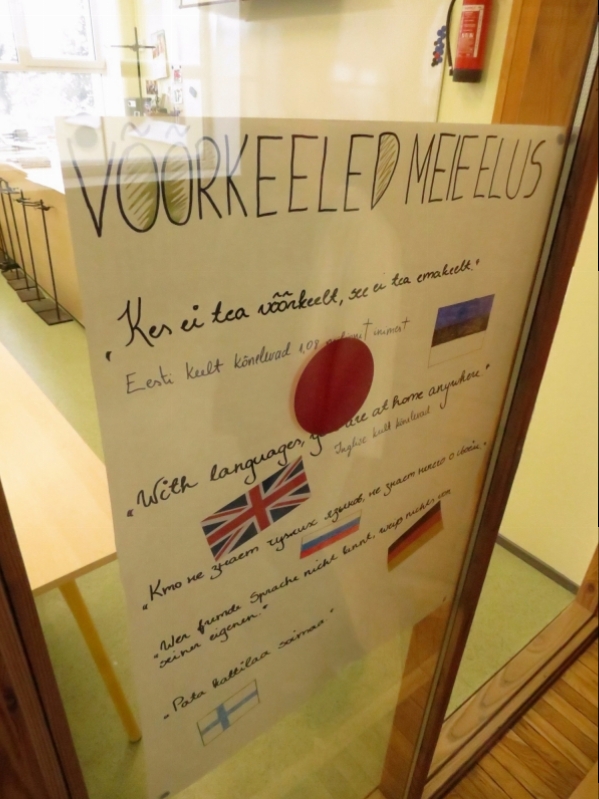 VÕÕRKEELED MEIE ELUS
"Kes ei tea võõrkeelt, see ei tea emakeelt."
Eesti keelt kõnelevad 1,08 inimest
"With languages, you are at home anywhere."
Inglise keelt kõnelevad
"Кто не знает чужих языков, не знает ничего о своём."
"Wer fremde Sprache nicht kennt, weiß nichts von
seiner eigenen."
"Pata kattilaa soimaa"